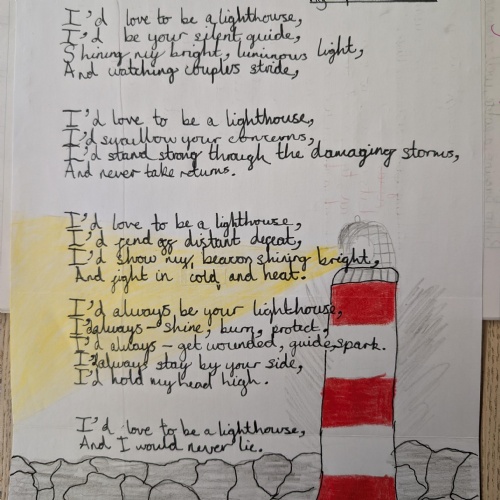 I'd love to be a lighthouse,
I'd be your silent guide,
Shining my bright, luminous light,
And watching couples stride,
I'd love to be a lighthouse,
I'd swallow your concerns,
I'd stand strong through the damaging storms,
And never take returns.
I'd love to be a lighthouse,
I'd fend off distant defeat,
I'd show my beacon shining bright,
And fight in cold, and heat.
I'd always be your lighthouse,
I'd always - shine, burn, protect,
I'd always - get wounded, guide, spark.
I'd always stay by your side,
I'd hold my head high.
I'd love to be a lighthouse,
And I would never lie.